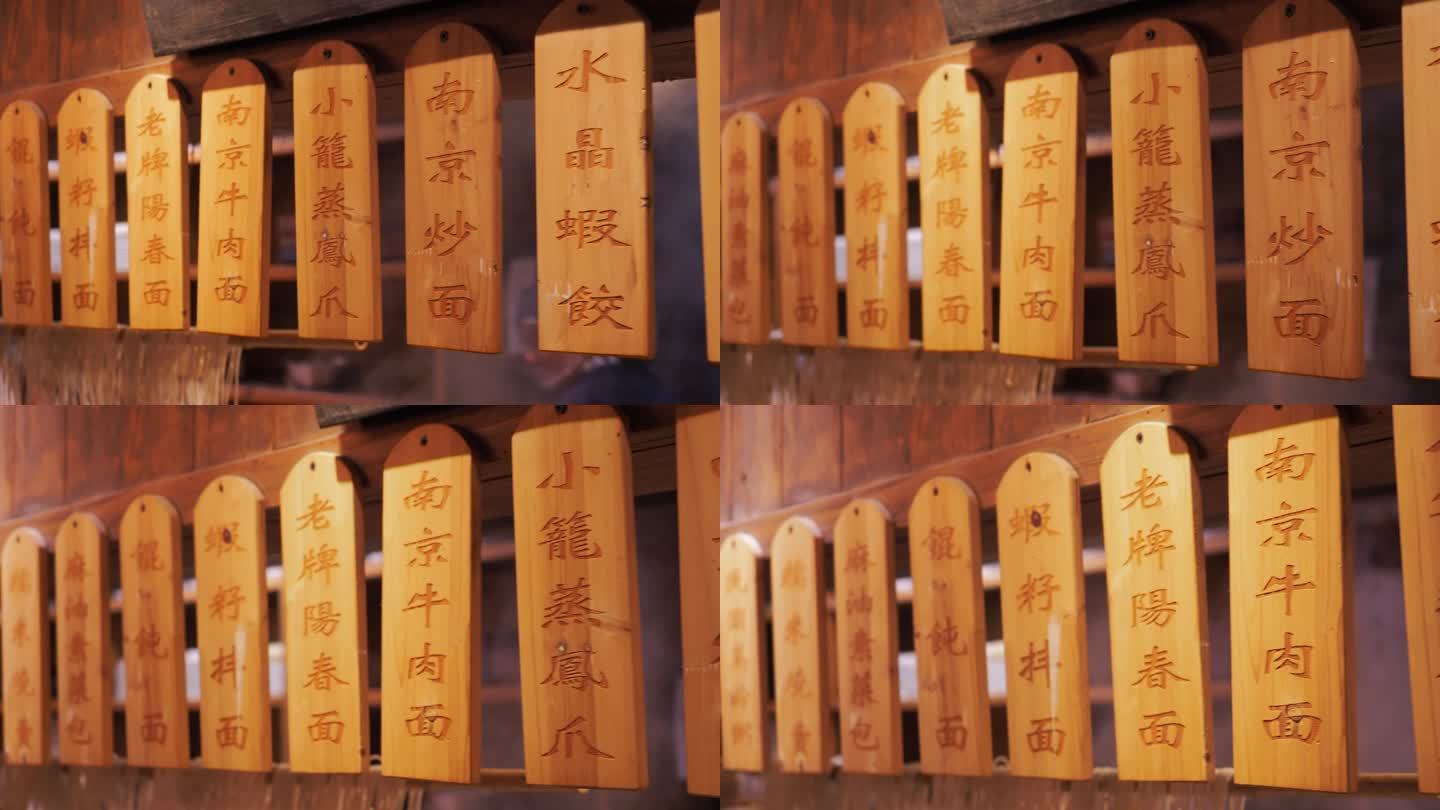 餛飩面
蝦籽抖面
老牌陽春面
南京牛肉面
小籠蒸鳳爪
南京炒面
水晶蝦餃
麻油素菜包
餛飩面
蝦籽抖面
老牌陽春面
南京牛肉面
小籠蒸鳳爪
南京炒面
麻油素菜包
餛飩面
蝦籽抖面
老牌陽春面
南京牛肉面
小籠蒸鳳爪
麻油素菜包
餛飩面
蝦籽抖面
老牌陽春面
南京牛肉面